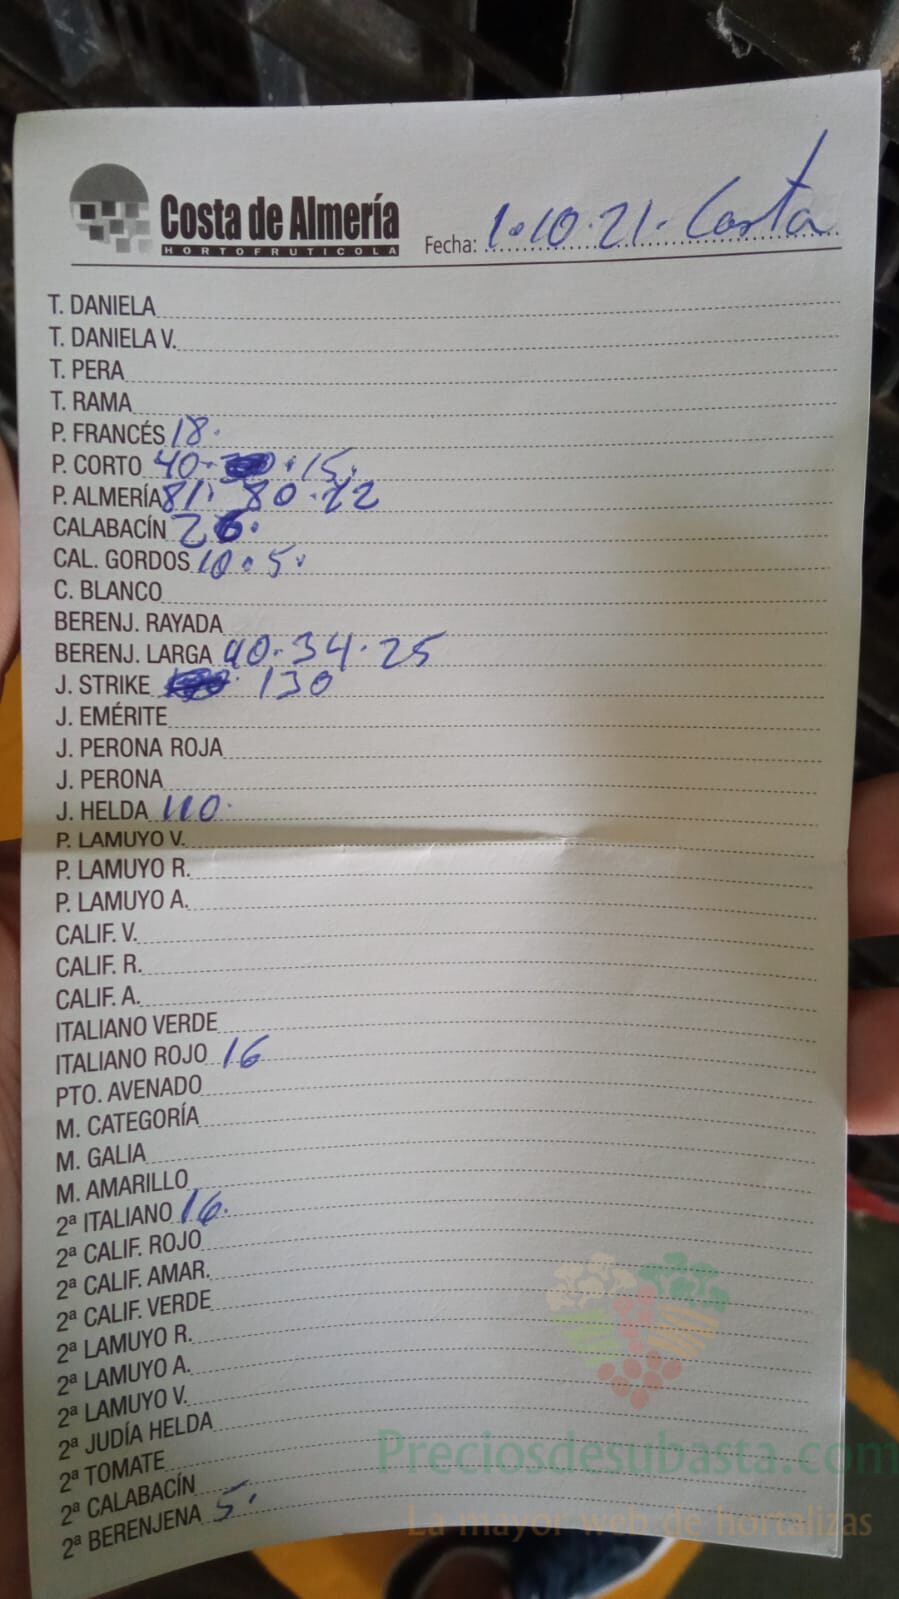 Costa de Almería
HORTOFRUTICOLA
Fecha: 1.10.21. Costa
T. DANIELA
T. DANIELA V.
T. PERA
T. RAMA
P. FRANCÉS 18.
P. CORTO 40. . 15.
P. ALMERÍA 81. 80.
CALABACÍN 26.
CAL. GORDOS 10.5.
C. BLANCO
BERENJ. RAYADA
BERENJ. LARGA 40.34.25
J. STRIKE 130
J. EMÉRITE
J. PERONA ROJA
J. PERONA
J. HELDA 110.
P. LAMUYO V.
P. LAMUYO R.
P. LAMUYO A.
CALIF. V.
CALIF. R.
CALIF. A.
ITALIANO VERDE
ITALIANO ROJO 16
PTO. AVENADO
M. CATEGORÍA
M. GALIA
M. AMARILLO
2ª ITALIANO 16.
2ª CALIF. ROJO
2ª CALIF. AMAR.
2ª CALIF. VERDE
2ª LAMUYO R.
2ª LAMUYO A.
2ª LAMUYO V.
2ª JUDÍA HELDA
2ª TOMATE
2ª CALABACÍN
2ª BERENJENA 5.
Preciosdesubasta.com
La mayor web de hortalizas